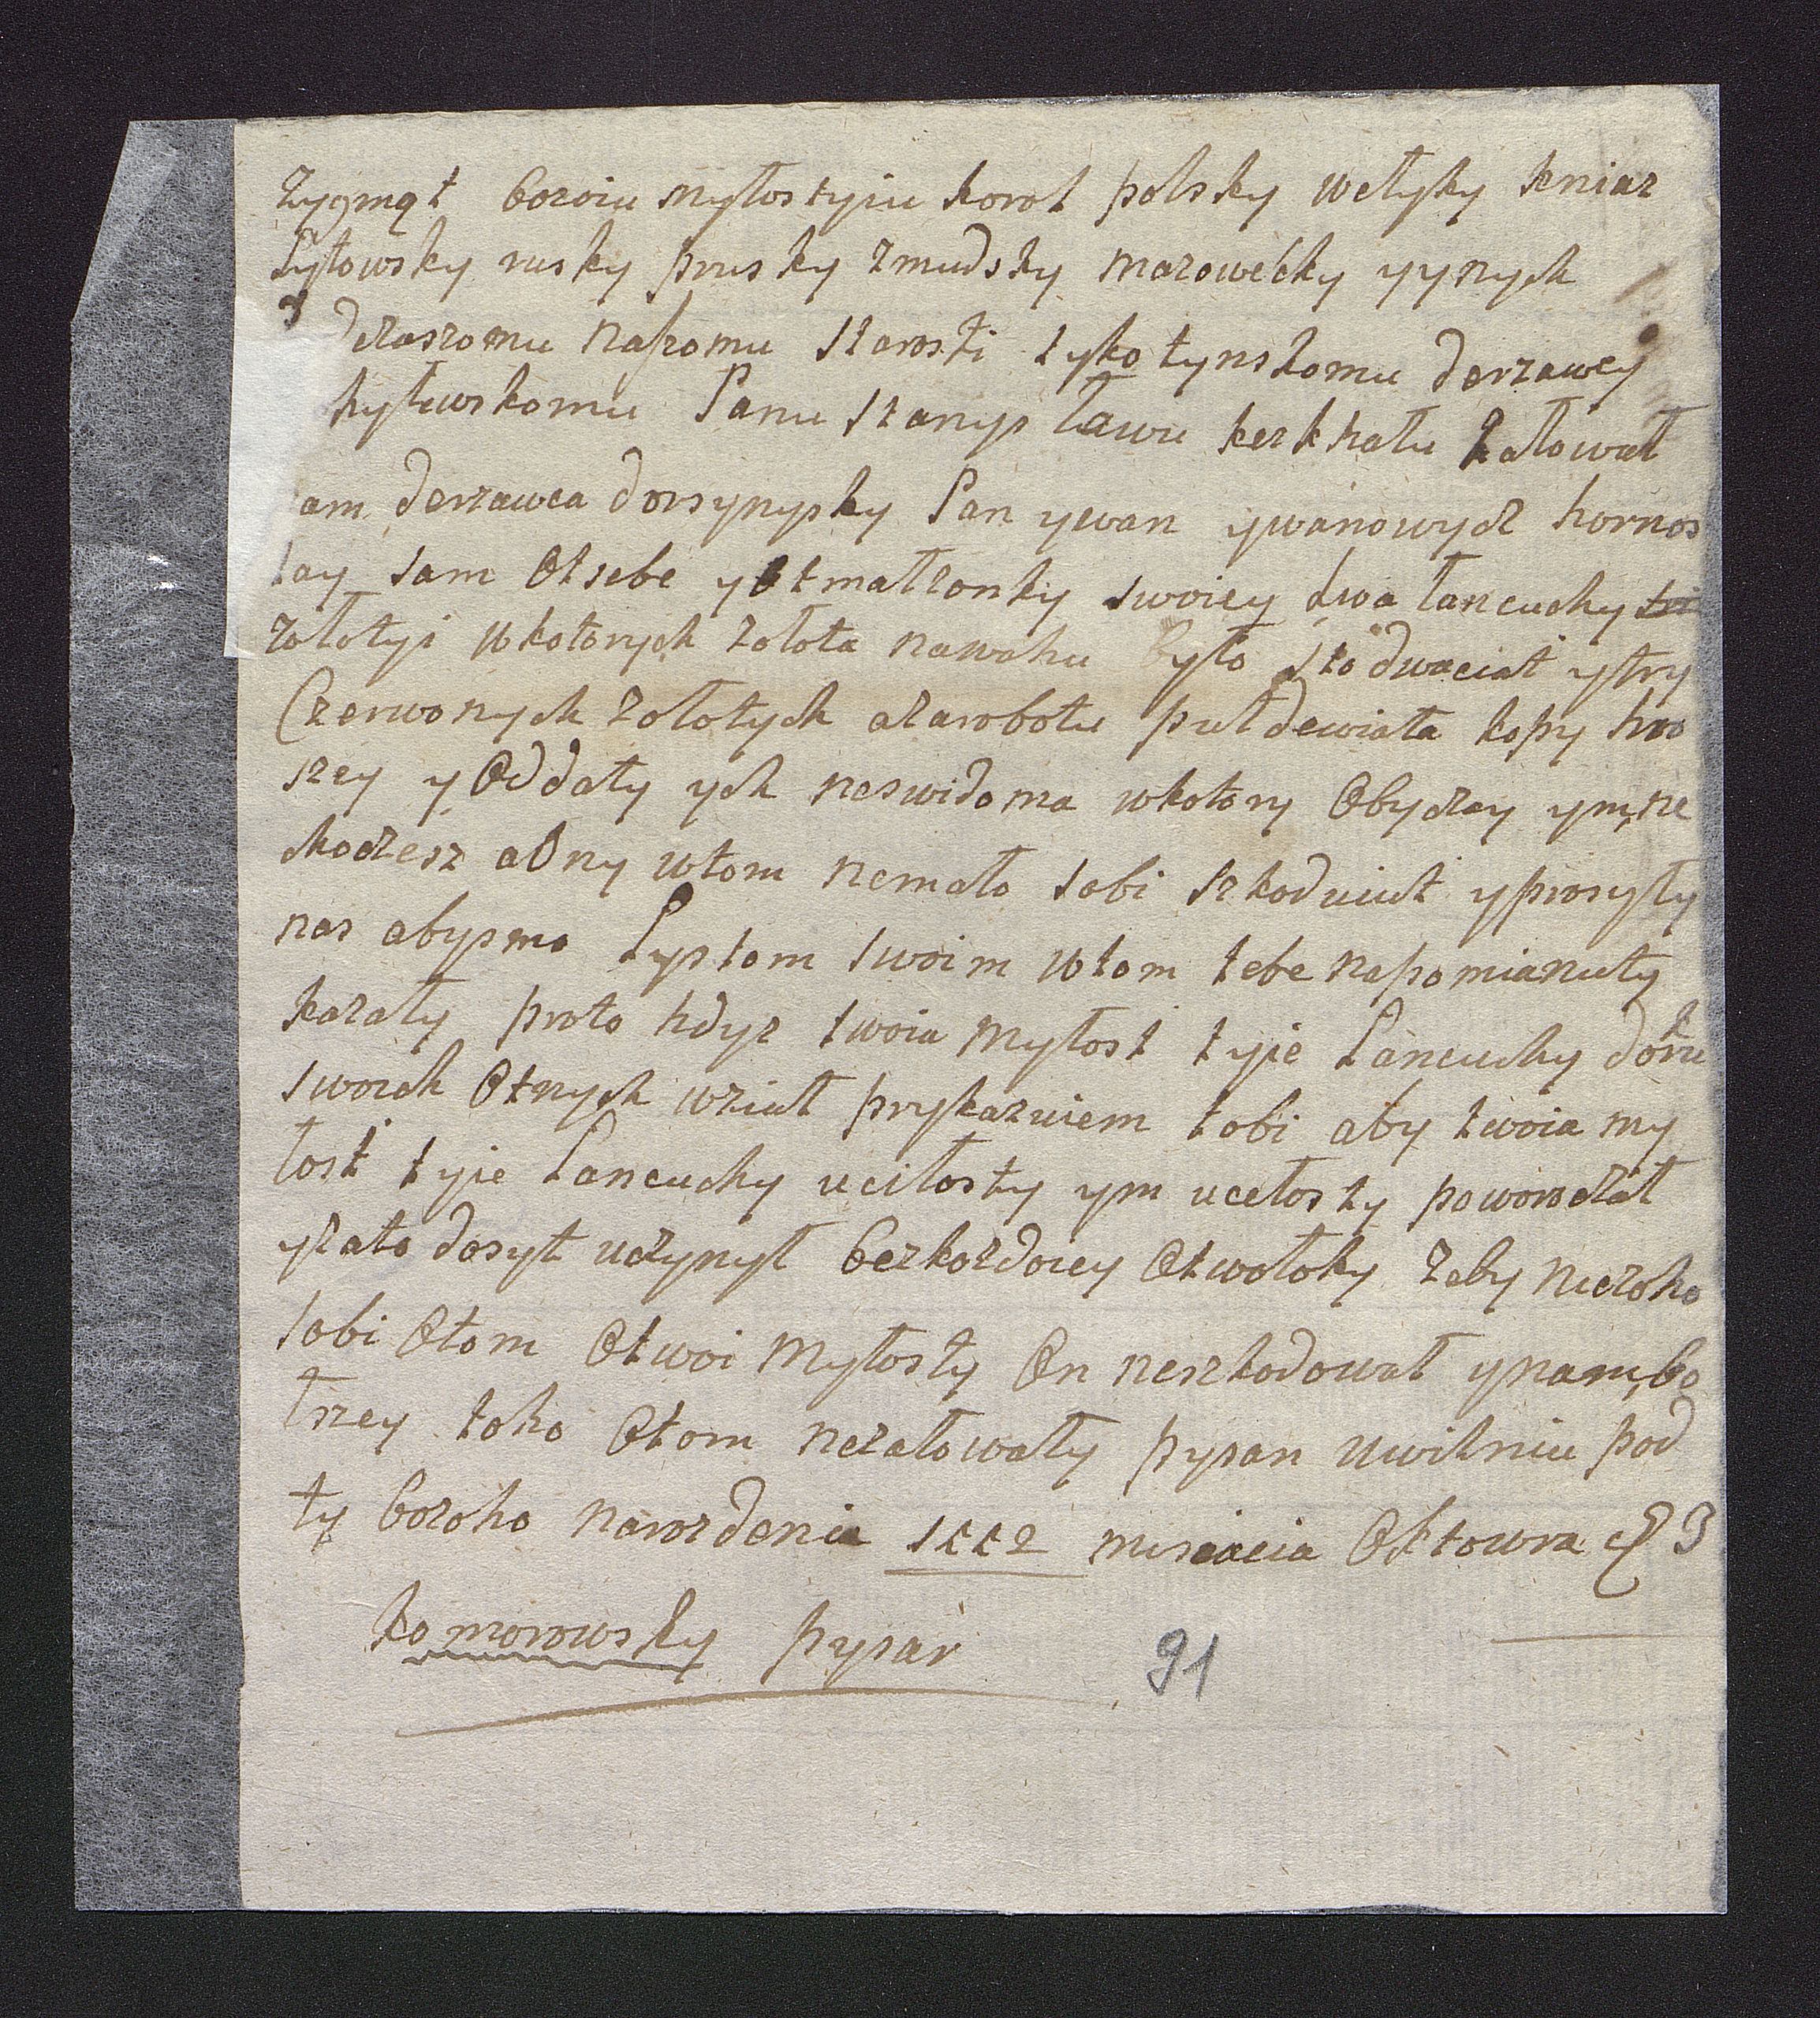 Zygmąt bozoiu mytostyiu korol polsky wełyky kniaz
Lytowsky rusky prusky zmudsky mazowećky yynych
derzszomu naszomu starosti tykotynskomu derzawcy
hyluwskomu Panu stanysławu kezkhału załował
am derzawca dorsynysky Pan ywan ywanowycz hornos
tay sam Otsebe yOtmałzonky swoiey dwa łancuchy
zołotyi wkotorych zołota nawahu było sto dwaciat ytry
Czerwonych zołotych azarobotu puł dewiata kopy hro
szey yOddały ych neswidoma wkotory Obyczay ym ne
choczesz aOny wtom nemało sobi szkoduiut yprosyły
nas abysmo Lystom swoim wtom tebe napomianuły
kazały proto hdyz twoia myłost tyie Lancuchy doru
k
swoich Otnych wziuł prykazuiem tobi aby twoia my
łost tyie Lancuchy uciłosty ym ucełosty poworoczał
yzato dosyt uczynył bezkozdoiey Otwołoky zeby niczoho
sobi Otom Otwoi Myłosty On neszkodował ynam bo
łszey toho Otom nezałowały pysan uwilniu pod
ły bozoho narozdenia 1552 misiacia Oktowra 3
komorowsky pysar
91